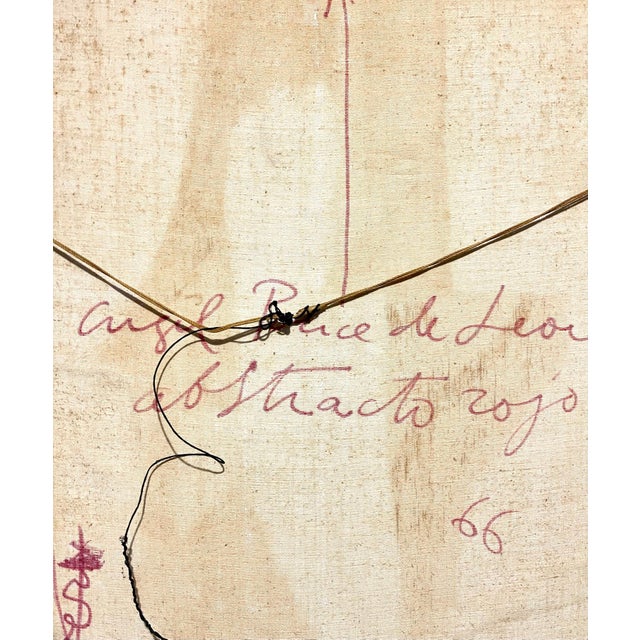 angel Ponce de Leon
abstracto rojo
66